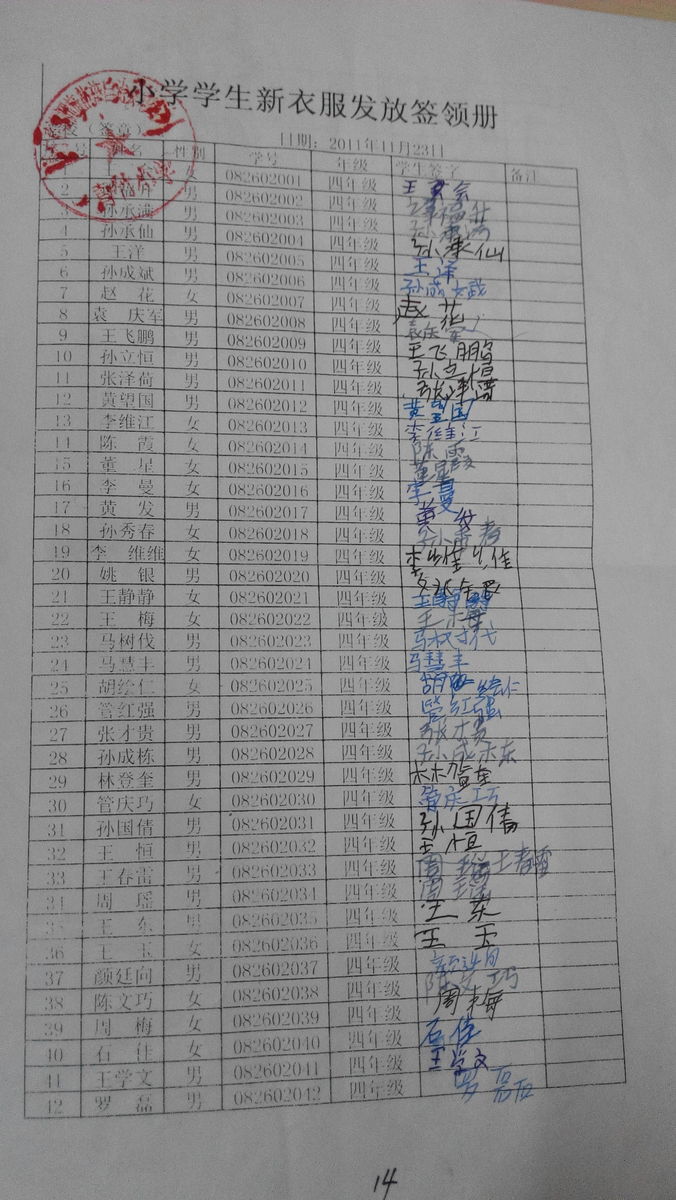 小学学生新衣服发放签领册
日期：2011年11月23日
号 姓名 性别 学号 年级 学生签字 备注
女 082602001 四年级 王
2 男 082602002 四年级
3 孙承满 男 082602003 四年级
4 孙承仙 男 082602004 四年级 孙承仙
5 王洋 男 082602005 四年级 王洋
6 孙成斌 男 082602006 四年级 孙成斌
7 赵 花 女 082602007 四年级 赵花
8 袁 庆军 男 082602008 四年级 袁庆军
9 王飞鹏 男 082602009 四年级 王飞鹏
10 孙立恒 男 082602010 四年级 孙立恒
11 张泽荷 男 082602011 四年级
12 黄望国 男 082602012 四年级 黄望国
13 李维江 女 082602013 四年级 李维江
14 陈 霞 女 082602014 四年级 陈霞
15 董 星 女 082602015 四年级 董星
16 李 曼 女 082602016 四年级 李曼
17 黄 发 男 082602017 四年级 黄发
18 孙秀春 女 082602018 四年级 孙秀春
19 李 维维 女 082602019 四年级 李维维
20 姚 银 男 082602020 四年级
21 王静静 女 082602021 四年级 王静静
22 王 梅 女 082602022 四年级 王梅
23 马树伐 男 082602023 四年级
24 马慧丰 男 082602024 四年级 马慧丰
25 胡绘仁 女 082602025 四年级 胡绘仁
26 管红强 男 082602026 四年级 管红强
27 张才贵 男 082602027 四年级 张才贵
28 孙成栋 男 082602028 四年级 孙成栋
29 林登奎 男 082602029 四年级 林登奎
30 管庆巧 女 082602030 四年级 管庆巧
31 孙国倩 男 082602031 四年级 孙国倩
32 王 恒 男 082602032 四年级 王恒
33 王春雷 男 082602033 四年级 王春雷
34 周 瑶 男 082602034 四年级 周瑶
35 王 东 男 082602035 四年级 王东
36 王 玉 女 082602036 四年级 王玉
37 颜廷向 男 082602037 四年级
38 陈文巧 女 082602038 四年级 陈文巧
39 周 梅 女 082602039 四年级 周梅
40 石 佳 女 082602040 四年级 石佳
41 王学文 男 082602041 四年级 王学文
42 罗 磊 男 082602042 四年级 罗磊
14